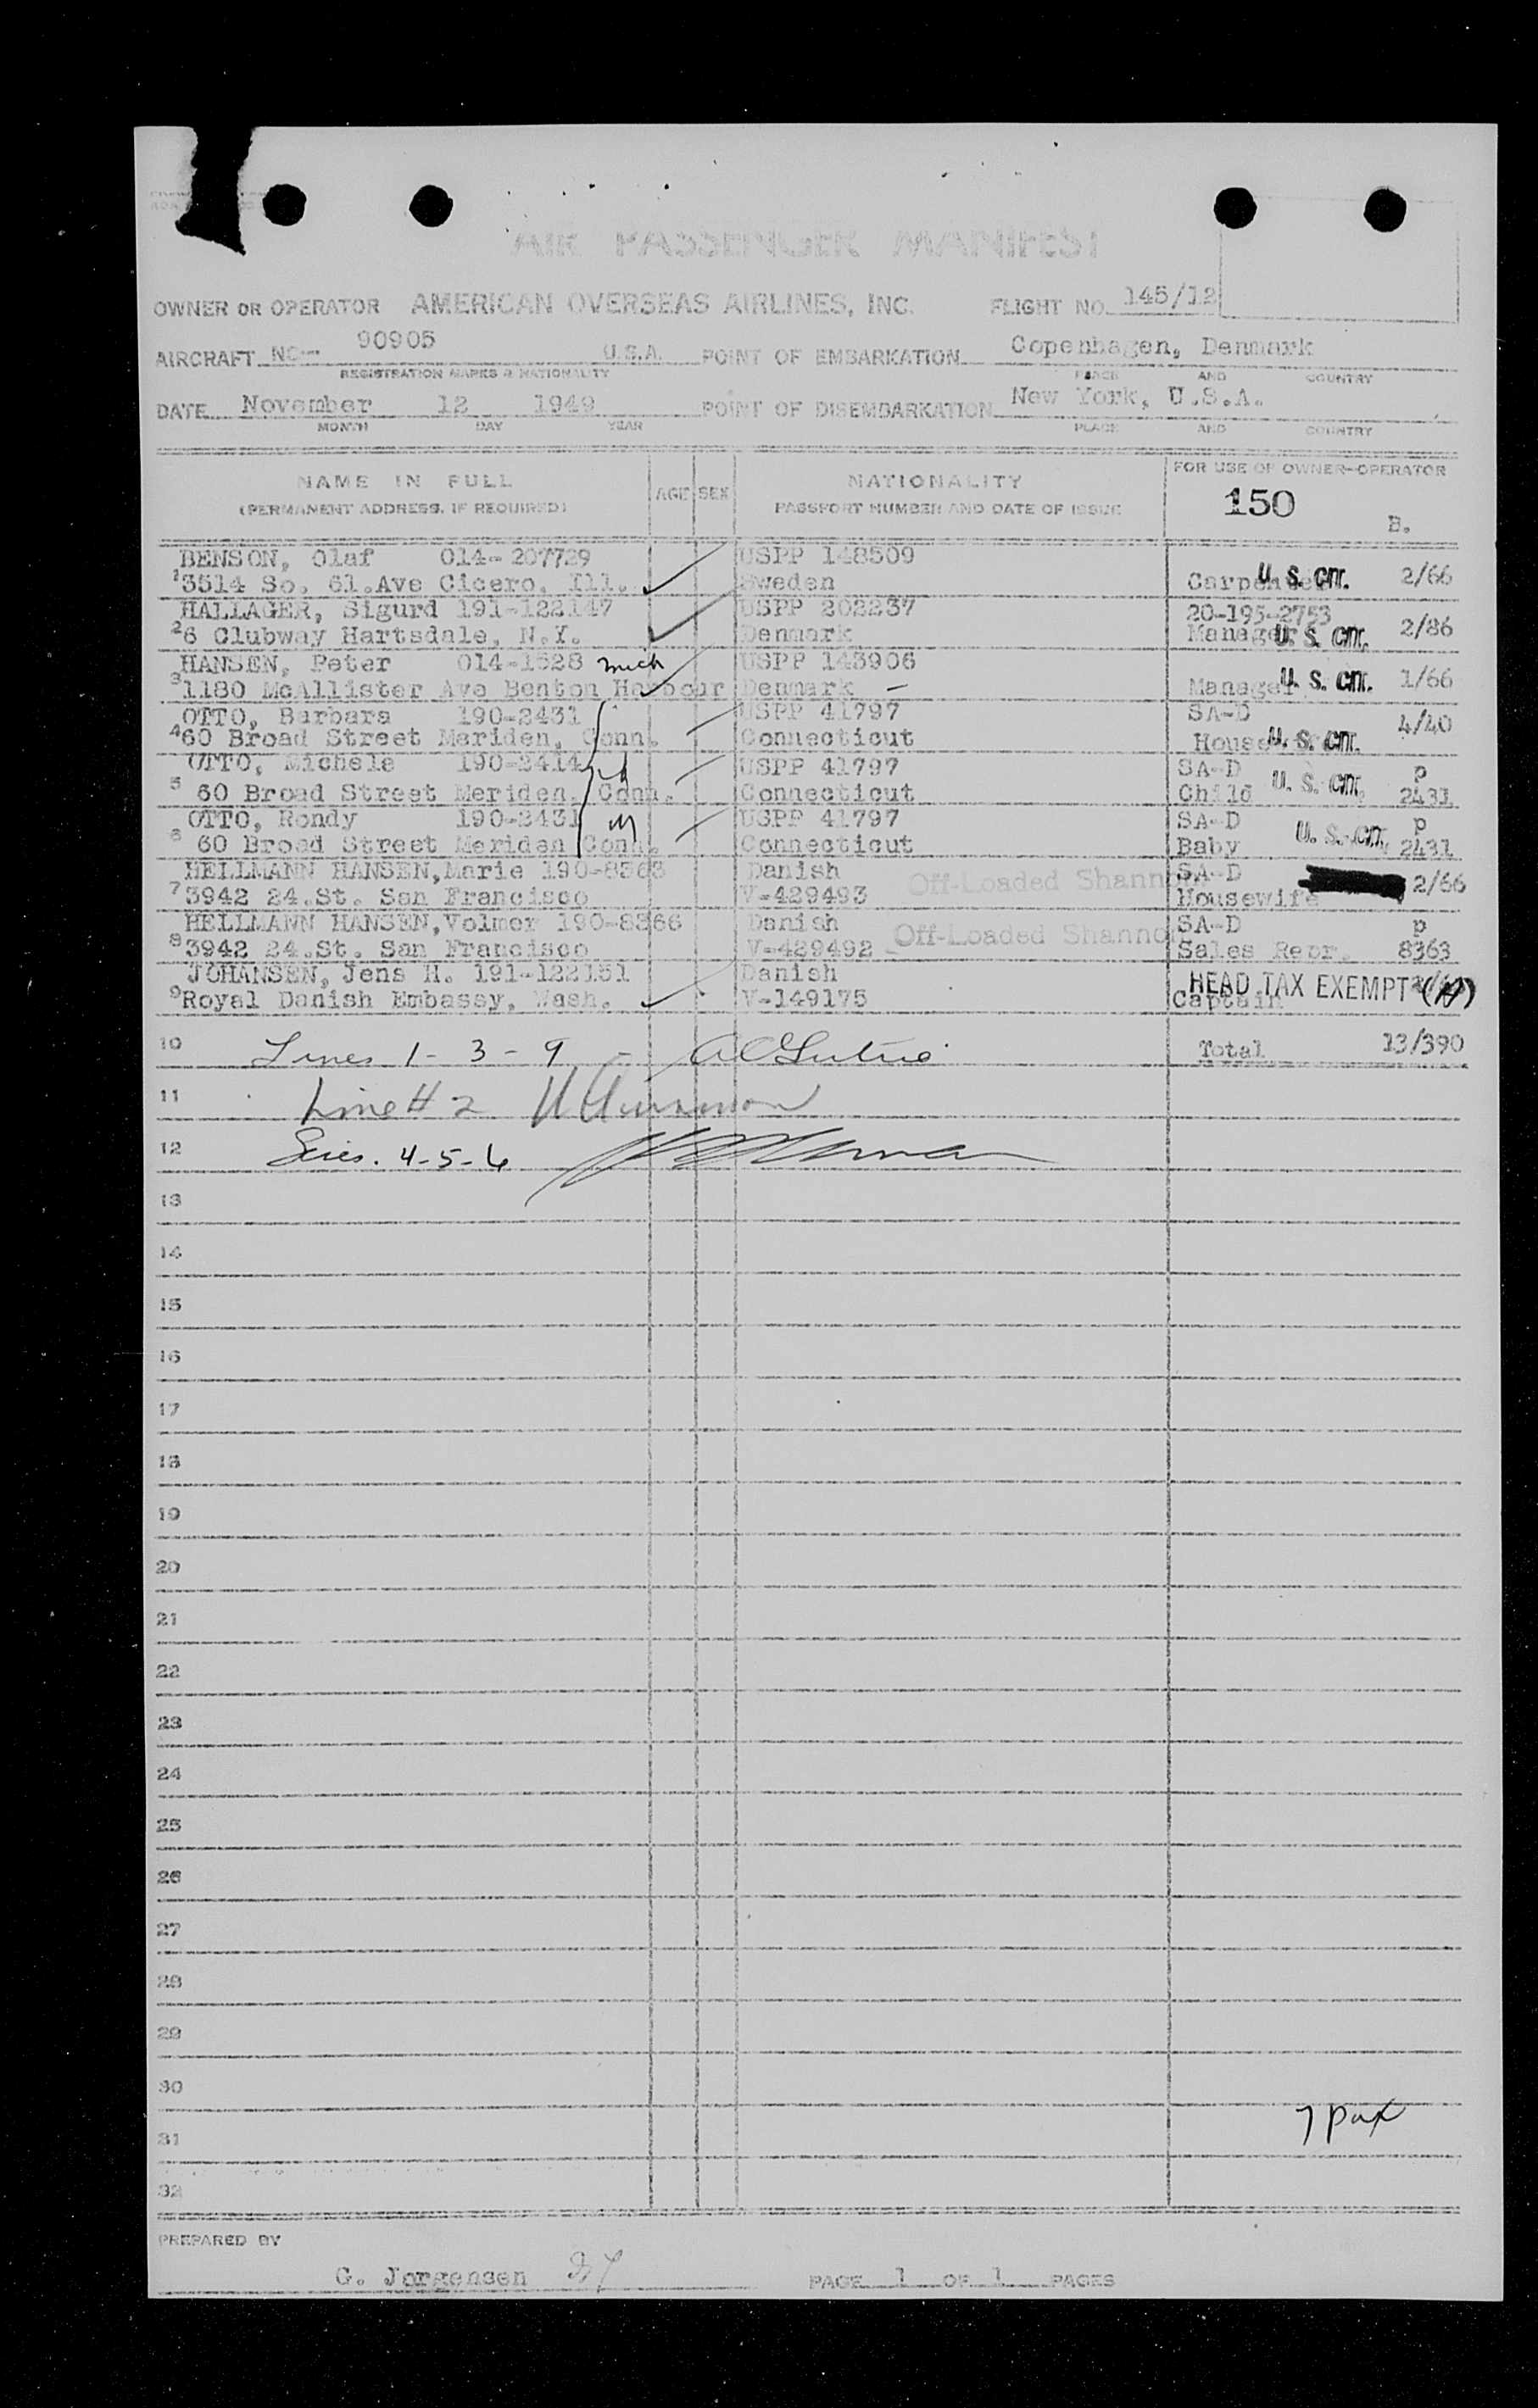 AIR PASSENGER MANIFEST
OWNER OR OPERATOR AMERICAN OVERSEAS AIRLINES, INC. FLIGHT NO. 145/12
AIRCRAFT NC- 90905 U.S.A. POINT OF EMBARKATION Copenhagen, Denmark
REGISTRATION MARKS & NATIONALITY PLACE AND COUNTRY
DATE November 12 1949 POINT OF DISEMBARKATION New York, U.S.A.
MONTH DAY YEAR PLACE AND COUNTRY
NAME IN FULL AGE SEX NATIONALITY FOR USE OF OWNER-OPERATOR
(PERMANENT ADDRESS, IF REQUIRED) PASSPORT NUMBER AND DATE OF ISSUE 150 B.
BENSON, Olaf 014-207729 USPP 148509
1 3514 So. 61.Ave Cicero, Ill. Sweden Carpenter U. S. CIT. 2/66
HALLAGER, Sigurd 191-122147 USPP 202237 20-195-2753
2 6 Clubway Hartsdale, N.Y. Denmark Manager U. S. CIT. 2/86
HANSEN, Peter 014-1528 mich USPP 143906
3 1180 McAllister Ave Benton Harbour Denmark - Manager U. S. CIT. 1/66
OTTO, Barbara 190-2431 USPP 41797 SA-D
4 60 Broad Street Meriden, Conn. Connecticut U. S. CIT. 4/40
OTTO, Michele 190-2414 USPP 41797 SA-D p
5 60 Broad Street Meriden, Conn. Connecticut Child U. S. CIT. 2431
OTTO, Rondy 190-2431 USPP 41797 SA-D p
6 60 Broad Street Meriden Conn. Connecticut Baby U. S. CIT. 2431
HELLMANN HANSEN, Marie 190-8363 Danish Off-Loaded Shannon SA-D
7 3942 24.St. San Francisco V-429493 Housewife 2/66
HELLMANN HANSEN, Volmer 190-8366 Danish Off-Loaded Shannon SA-D p
8 3942 24.St. San Francisco V-429492 - Sales Repr. 8363
JOHANSEN, Jens H. 191-122151 Danish HEAD TAX EXEMPT
9 Royal Danish Embassy, Wash. V-149175 Captain
10 Lines 1- 3- 9 - Total 13/390
11 Line # 2
12 4-5-6
13
14
15
16
17
18
19
20
21
22
23
24
25
26
27
28
29
30
7 pax
31
32
PREPARED BY
G. Jorgensen PAGE 1 OF 1 PAGES